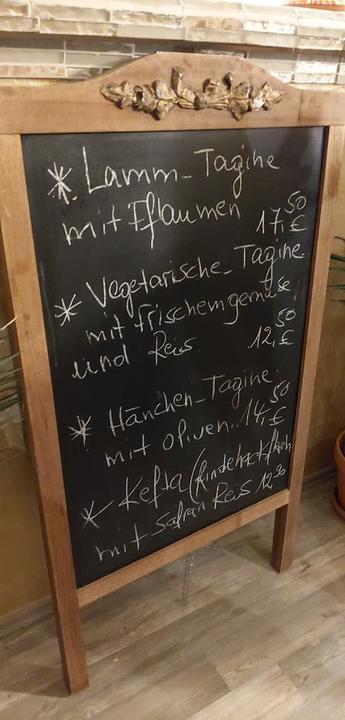 * Lamm-Tagine
mit Pflaumen 17,50 €
* Vegetarische-Tagine
mit frischem gemüse
und Reis. 12,50 €
* Hänchen-Tagine
mit oliven. 14,50 €
* Kefta (Rindehack
mit Safran Reis 12,90